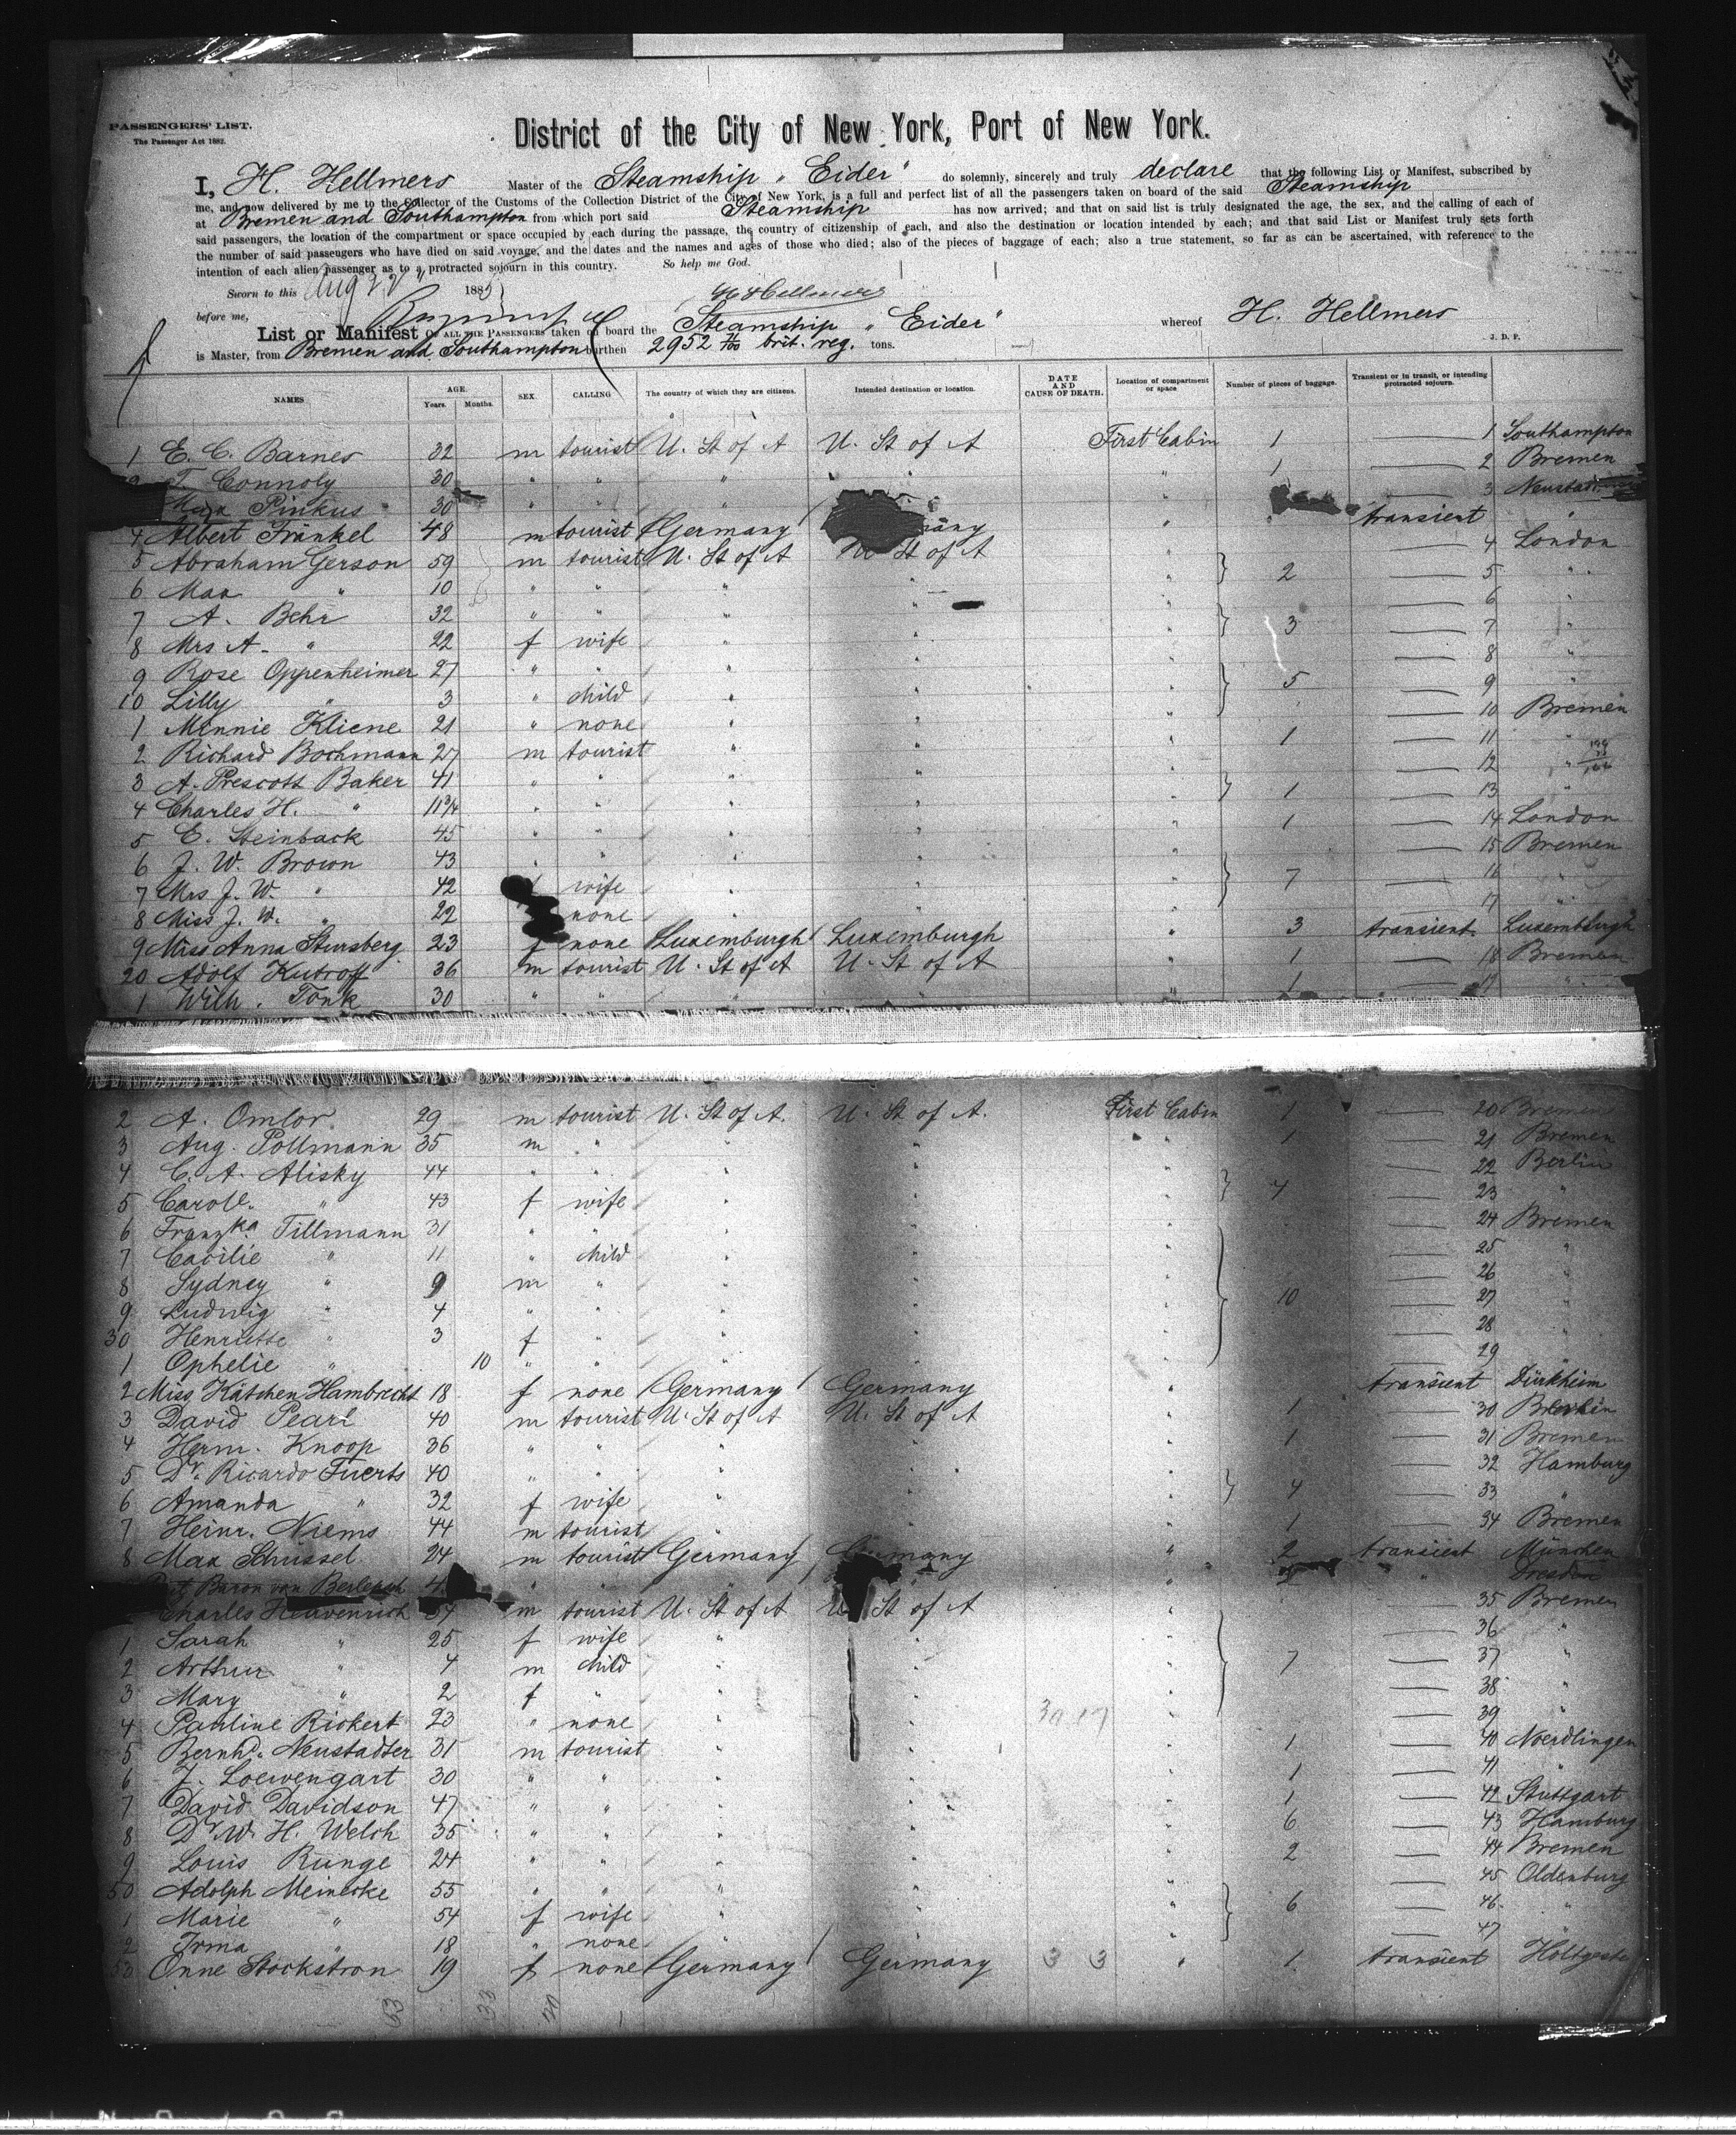 PASSENGERS' LIST.
The Passenger Act 1882.
District of the City of New York, Port of New York.
I, H. Hellmers Master of the Steamship „ Eider " do solemnly, sincerely and truly declare that the following List or Manifest, subscribed by
me, and now delivered by me to the Collector of the Customs of the Collection District of the City of New York, is a full and perfect list of all the passengers taken on board of the said Steamship
at Bremen and Southampton from which port said Steamship has now arrived; and that on said list is truly designated the age, the sex, and the calling of each of
said passengers, the location of the compartment or space occupied by each during the passage, the country of citizenship of each, and also the destination or location intended by each; and that said List or Manifest truly sets forth
the number of said passengers who have died on said voyage, and the dates and the names and ages of those who died; also of the pieces of baggage of each; also a true statement, so far as can be ascertained, with reference to the
intention of each alien passenger as to a protracted sojourn in this country. So help me God.
Sworn to this Aug 22 1885
H Hellmers
before me,
List or Manifest OF ALL THE PASSENGERS taken on board the Steamship „ Eider " whereof H. Hellmers
is Master, from Bremen and Southampton burthen 2952 brit. reg. tons.
J. D. P.
NAMES AGE. Years. Months. SEX. CALLING The country of which they are citizens. Intended destination or location. DATE AND CAUSE OF DEATH. Location of compartment or space Number of pieces of baggage. Transient or in transit, or intending protracted sojourn.
1 E. C. Barnes 32 m tourist U. St of A U. St of A First Cabin 1 — 1 Southampton
2 T. Connoly 30 " " " " 1 — 2 Bremen
Max Pinkus 30 " " — 3
4 Albert Fränkel 48 m tourist Germany " transient "
5 Abraham Gerson 59 m tourist U. St of A U. St of A " 2 — 4 London
6 Max " 10 " " " " " — 5 "
7 A. Behr 32 " " " " " 3 — 6
8 Mrs A. " 22 f wife " " " — 7 "
9 Rose Oppenheimer 27 " " " " " 5 — 8 "
10 Lilly " 3 " child " " " — 9 "
1 Minnie Kliene 21 " none " " " — 10 Bremen
2 Richard Bochmann 27 m tourist " " " 1 — 11 "
3 A. Prescott Baker 41 " " " " " 1 — 12 "
4 Charles H. " 11 3/4 " " " " " — 13 "
5 E. Steinback 45 " " " " " 1 — 14 London
6 J. W. Brown 43 " " " " " 7 — 15 Bremen
7 Mrs J. W. " 42 wife " " " — 16 "
8 Miss J. W. " 22 none " " " — 17 "
9 Miss Anna Stursberg 23 f none Luxemburgh Luxemburgh " 3 transient Luxemburgh
20 Adolf Kutroff 36 m tourist U. St of A U. St of A " 1 — 18 Bremen
1 Wilh. Tonk 30 " " " " " 1 — "
2 A. Omlor 29 m tourist U. St of A. U. St of A. First Cabin 1 20 Bremen
3 Aug. Pollmann 35 m " " " " 1 — 21 Bremen
4 C. A. Alisky 44 " " " " " 4 — 22 Berlin
5 Carol. " 43 f wife " " " — 23 "
6 Franzka Tillmann 31 " " " " " 10 — 24 Bremen
7 Cacilie " 11 " child " " " — 25 "
8 Sydney " 9 m " " " " — 26 "
9 Ludwig " 4 " " " " " — 27 "
30 Henriette " 3 f " " " " — 28 "
1 Ophelie " 10 " " " " " — 29 "
2 Miss Kätchen Hambrecht 18 f none Germany Germany " transient Dürkheim
3 David Pearl 40 m tourist U. St of A U. St of A " 1 — 30
4 Herm. Knoop 36 " " " " " 1 — 31 Bremen
5 Dr. Ricardo Fuerts 40 " " " " " 4 — 32 Hamburg
6 Amanda " 32 f wife " " " — 33 "
7 Heinr. Niems 44 m tourist " " " 1 — 34 Bremen
8 Max Schüssel 24 m tourist Germany Germany " 2 transient München
Baron von Berlepsch " " " " " Dresden
Charles Heavenrich 37 m tourist U. St of A U. St of A " 7 — 35 Bremen
1 Sarah " 25 f wife " " " — 36 "
2 Arthur " 4 m child " " " — 37 "
3 Mary " 2 f " " " " — 38 "
4 Pauline Rickert 23 " none " " " — 39 "
5 Bernhd. Neustadter 31 m tourist " " " 1 — 40 Noerdlingen
6 J. Loewengart 30 " " " " " 1 — 41 "
7 David Davidson 47 " " " " " 1 — 42 Stuttgart
8 Dr W. H. Welch 35 " " " " " 6 — 43 Hamburg
9 Louis Runge 24 " " " " " 2 — 44 Bremen
50 Adolph Meinecke 55 " " " " " 6 — 45 Oldenburg
1 Marie " 54 f wife " " " — 46 "
2 Irma " 18 " none " " " — 47 "
53 Onne Stockstron 19 f none Germany Germany 3 3 " 1 transient
53 33 20